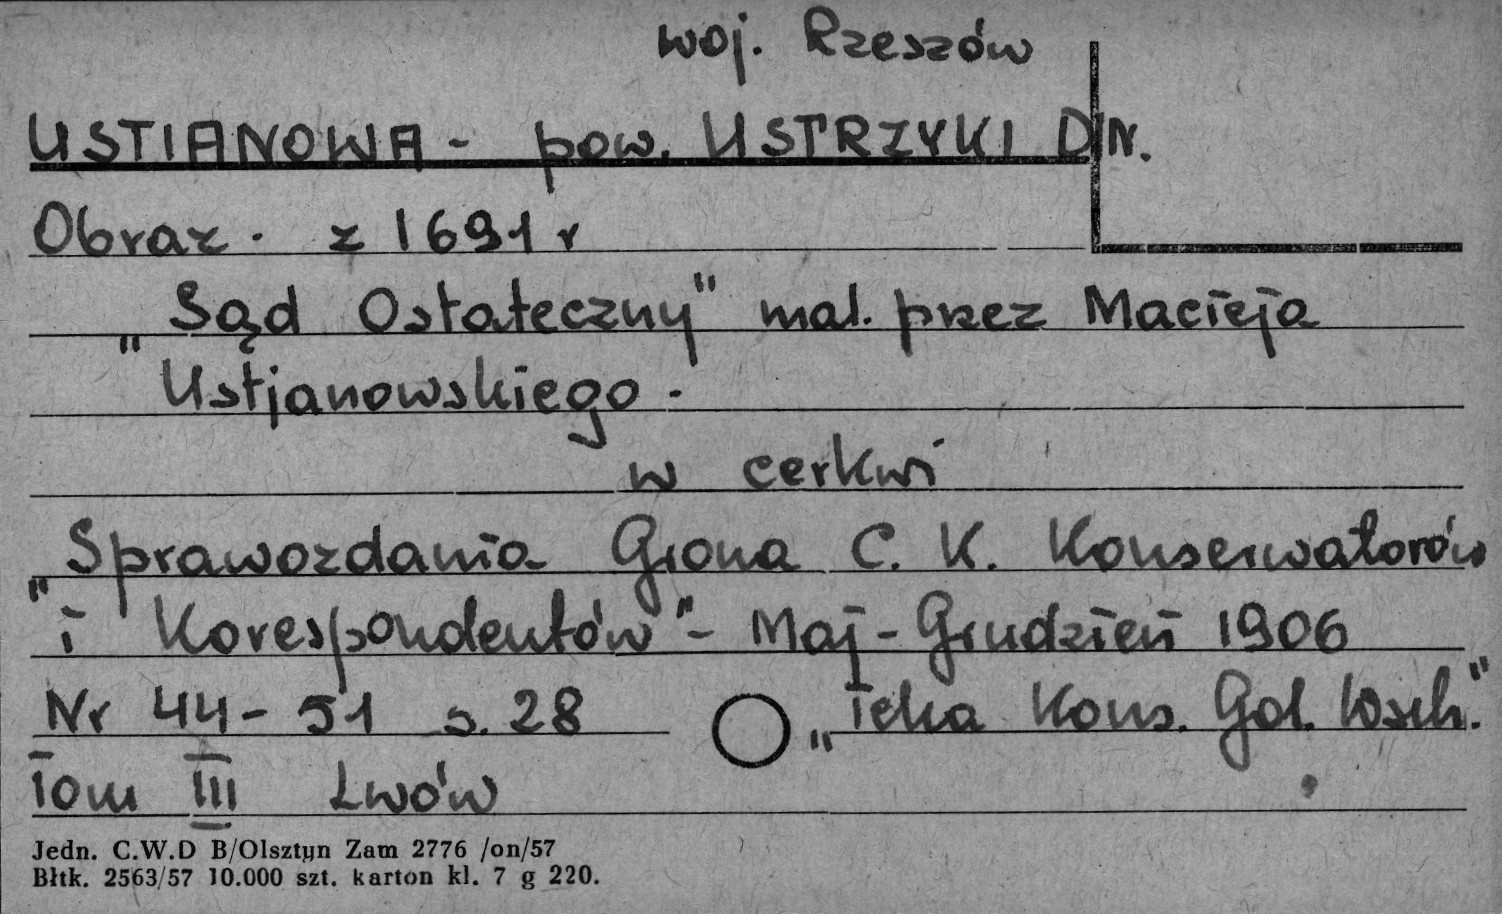 woj. Rzeszów
USTIANOWA - pow. USTRZYKI DN.
Obraz. z 1691 r
„Sąd Ostateczny" mal. przez Macieja
Ustjanowskiego.
w cerkwi
„Sprawozdania Grona C. K. Konserwatorów
i Korespondentów" - Maj - Grudzień 1906
Nr 44 - 51 s. 28 „Teka Kons. Gal. Wsch."
Tom III Lwów
Jedn. C.W.D B/Olsztyn Zam 2776 /on/57
Błtk. 2563/57 10.000 szt. karton kl. 7 g 220.